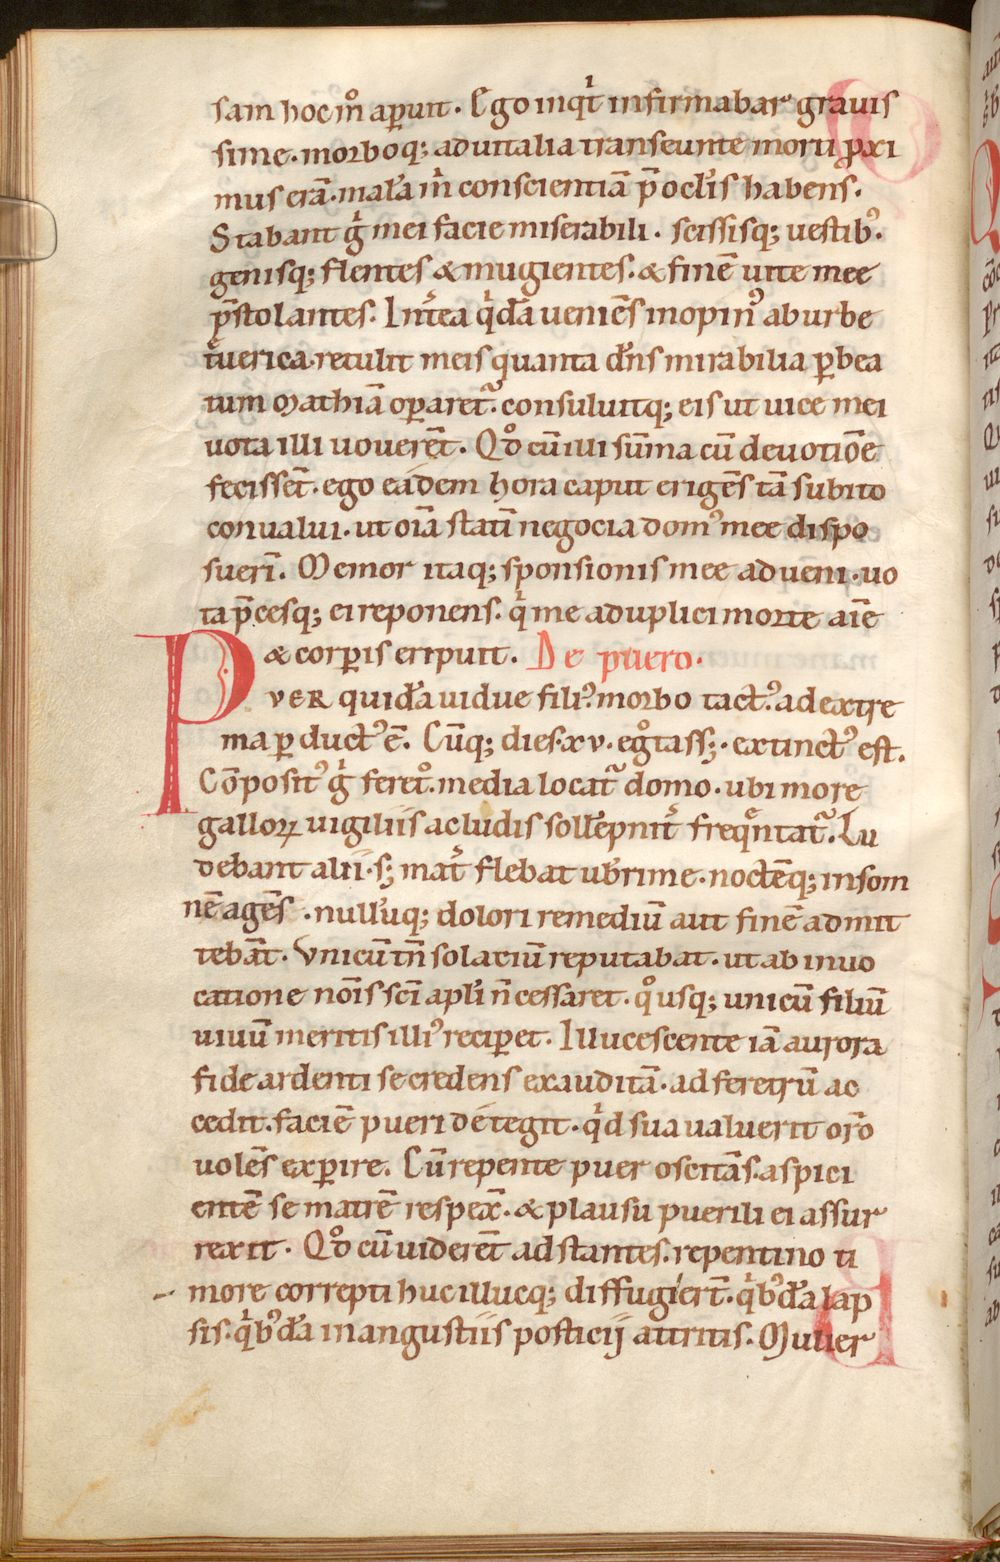 sam hoc m̊ aꝑuit. Ego inqͥt infirmabar grauis
sime. morboq; ad uitalia transeunte morti ꝓxi
mus erā. mala᷑ m̍ conscientiā p̄ ocl̓is habens.
Stabant gͥ mei facie miserabili. scissisq; uestib᷒.
genisq; flentes & mugientes. & finē uite mee
p̄stolantes. Int̓ea qͥda᷑ ueniēs inopin᷒ ab urbe
t̓uerica. retulit meis quanta dn̄s mirabilia ꝑ bea
tum mathiā oꝑaret᷑. consuluitq; eis ut uice mei
uota illi uouerēt. Qd̊ cū iui sūma cū deuotiōe
fecissēt. ego eādem hora caput erigēs tā subito
conualui. ut oīa statī negocia dom᷒ mee dispo
suerī. Memor itaq; sponsionis mee adueni. uo
ta p̄cesq; ei reponens. qͥ me a duplici morte aīe
& corꝑis eripuit. De puero.
PVER quida᷑ uidue fili᷒. morbo tact᷒. ad extre
ma ꝑduct᷒ ē. Cūq; dies. xv. eg̊tass;. extinct᷒ est.
Cōposit᷒ gͥ feret̊. media locat᷑ domo. ubi more
galloꝝ uigiliis ac ludis sollēpnit̓ freq̄ntat᷑. Lu
debant alii. s; mat̓ flebat ub̓rime. noctēq; insom
nē agēs. null᷑uq; dolori remediū aut finē admit
tebāt. Vnicū tn̄ solatiū reputabat. ut ab inuo
catione nōis sc̄i apl̓i n̄ cessaret. qͦusq; unicū filiū
uiuū meritis illi᷒ reciꝑet. Illucescente iā aurora
fide ardenti se credens exauditā. ad feretrū ac
cedit. faciē pueri detegit. qͥd sua ualuerit or̄o
uolēs exꝑire. Cū repente puer oscitās. aspici
entē se matrē respex̄. & plausu puerili ei assur
rexit. Qd̊ cū uiderēt adstantes. repentino ti
more correpti huc illucq; diffugier̄t. qͥb᷒da᷑ lap
sis. qͥb᷒da᷑ in angustiis posticij attritis. Mulier